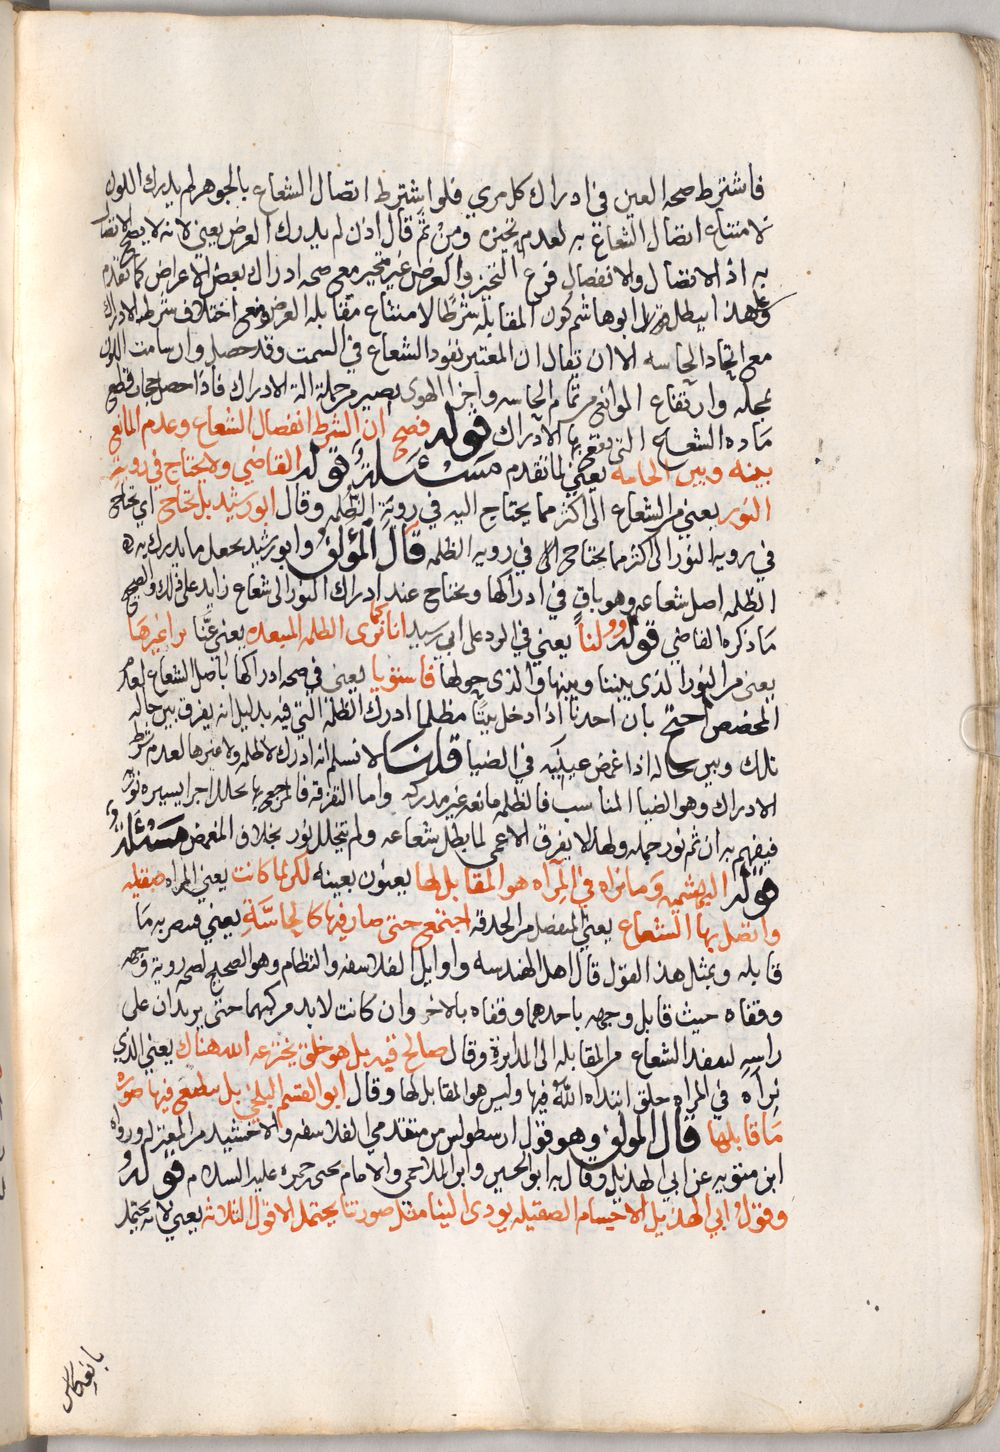 فاشترط صحه العين في ادراك كل مري فلو اشترط اتصال الشعاع بالجوهر لم يدرك اللون
لامتناع اتصال الشعاع به لعدم تحيزه ومن ثم قال اذن لم يدرك العرض يعني لانه لا يصح الاتصال
به اذ الاتصال والانفصال فرع التحيز والعرض غير متحيز مع صحه ادراك بعض الاعراض كما تقدم
وعلى هذا ابطل ابو هاشم كون المقابله شرطا لامتناع مقابله العرض ومنع اختلاف شرط الادراك
مع اتحاد الحاسه الا ان يقال ان المعتبر نفود الشعاع في السمت وقد حصل وان سامت اللون
بمحله وارتفاع الموانع من تمام الحاسه واجزا الهوى يصير من جملة الة الادراك فاذا حصل حجاب قطع
ماده الشعاع التي يقع بها الادراك قوله فصح ان الشرط انفصال الشعاع وعدم المانع
بينه وبين الحاسه يعني لما تقدم مسئلة قوله القاضي ولا يحتاج في روية
النور يعني من الشعاع الى اكثر مما يحتاج اليه في روية الظلمه وقال ابو رشيد بل يحتاج اي يحتاج
في رويه النور الى اكثر مما يحتاج في رويه الظلمه قال المؤلف وابو رشيد يجعل ما يدرك به
الظلمه اصل شعاعه وهو باق في ادراكها ويحتاج عند ادراك النور الى شعاع زايد على ذلك والصحيح
ما ذكره القاضي قوله لنا يعني في الرد على ابي رشيد انا كما نرى الظلمه المبعده يعني عنا نرا غيرها
يعني من النور الذي بيننا وبينها والذي حولها فاستويا يعني في صحه ادراكها باصل الشعاع لعدم
المخصص احتج بان احدنا اذا دخل بيتا مظلما ادرك الظلمة التي فيه بدليل انه يفرق بين حاله
تلك وبين حاله اذا غمض عينيه في الضيا قلنا لا نسلم انه ادرك لا ظلمه ولا غيرها لعدم شرط
الادراك وهو الضيا المناسب فالظلمه مانعه غير مدركه واما التفرقه فالمرجع بها تخلل اجزا يسيره نور
فيفهم به ان ثم نور جمله ولهذا لا يفرق الاعمى لما بطل شعاعه ولم يتخلل نور بخلاف المغمض مسئلة
قوله البهشميه وما نراه في المرآه هو المقابل لها يعنون بعينه لكن لما كانت يعني المراه صقيله
واتصل بها الشعاع يعني المنفصل من الحدقه اجتمع حتى صار فيها كالحاسة يعني فنصر به ما
قابله وبمثل هذا القول قال اهل الهندسه واوايل الفلاسفه والنظام وهو الصحيح لصحه روية وجهه
وقفاه حيث قابل وجهه باحدهما وقفاه بالاخر وان كانت لابد مركبهما حتى يزيدان على
راسه لينفد الشعاع من المقابله الى المدابرة وقال صالح قبه بل هو خلق يخترعه الله هناك يعني الذي
نراه في المراه خلق ابتداه الله فيها وليس هو المقابل لها وقال ابو القسم البلخي بل ينطبع فيها صوره
ما قابلها قال المولف وهو قول ارسطوليس من متقدمي الفلاسفه والاخشيد من المعتزله ورواه
ابن متويه عن ابي الهذيل وقال به ابو الحسين وابن الملاحمي والامام يحيى بن حمزه عليه السلام قوله
وقول ابي الهذيل الاجسام الصقيله يودى الينا مثل صورتنا يحتمل الاقوال الثلاثه يعني لانه يحتمل
بانعكاس